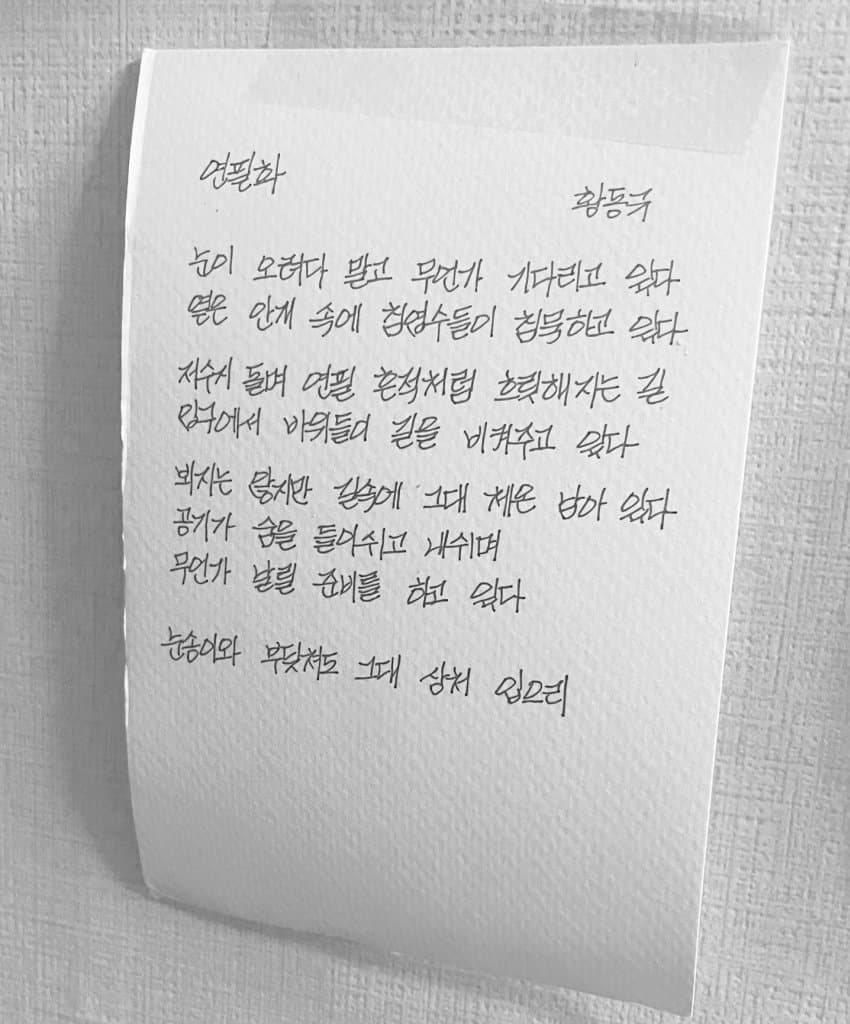 연필화
황동규
눈이 오려다 말고 무언가 기다리고 있다
옅은 안개 속에 침엽수들이 침묵하고 있다
저수지 돌며 연필 흔적처럼 흐릿해지는 길
입구에서 바위들이 길을 비켜주고 있다
뵈지는 않지만 길속에 그대 체온 남아 있다
공기가 숨을 들이쉬고 내쉬며
무언가 날릴 준비를 하고 있다
눈송이와 부딪쳐도 그대 상처 입으리